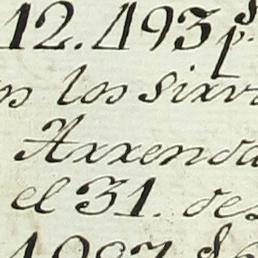 12.493 p.s
los sirv
Arrenda
el 31. de